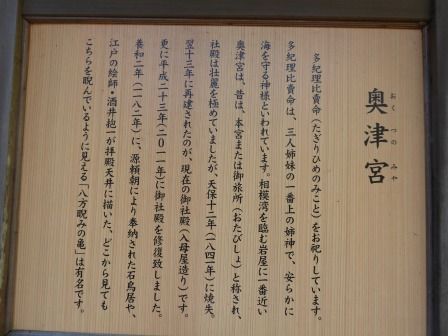 奥津宮
おくつのみや
多紀理比賣命(たぎりひめのみこと)をお祀りしています。
多紀理比賣命は、三人姉妹の一番上の姉神で、安らかに
海を守る神様といわれています。相模湾を臨む岩屋に一番近い
奥津宮は、昔は、本宮または御旅所(おたびしょ)と称され、
社殿は壮麗を極めていましたが、天保十二年(一八四一年)に焼失。
翌十三年に再建されたのが、現在の御社殿(入母屋造り)です。
更に平成二十三年(二〇一一年)に御社殿を修復致しました。
養和二年(一一八二年)に、源頼朝により奉納された石鳥居や、
江戸の絵師・酒井抱一が拝殿天井に描いた、どこから見ても
こちらを睨んでいるように見える「八方睨みの亀」は有名です。